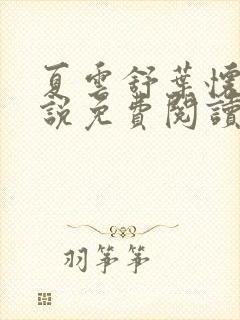 夏雲舒葉懷
說免費閱讀
羽箏箏